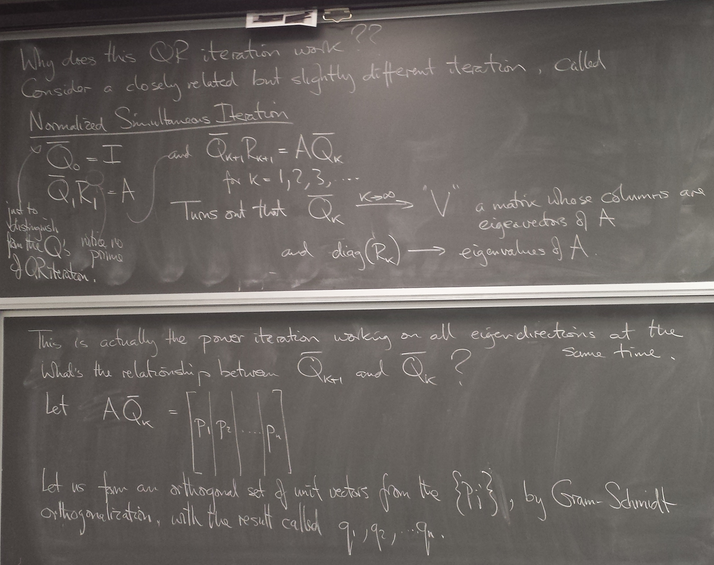 Why does this QR iteration work??
Consider a closely related but slightly different iteration, called
Normalized Simultaneous Iteration
Q̄₀ = I and Q̄ₖ₊₁Rₖ₊₁ = AQ̄ₖ
Q̄₁R₁ = A for k = 1, 2, 3, ...
just to distinguish from the Q's of QR iteration.
notice no prime
Turns out that Q̄ₖ K→∞ "V" a matrix whose columns are
eigenvectors of A
and diag(Rₖ) → eigenvalues of A.
This is actually the power iteration working on all eigendirections at the
same time.
What's the relationship between Q̄ₖ₊₁ and Q̄ₖ?
Let AQ̄ₖ = [p₁ | p₂ | .... | pₙ]
Let us form an orthogonal set of unit vectors from the {pᵢ}, by Gram-Schmidt
orthogonalization, with the result called q₁, q₂, ... qₙ.